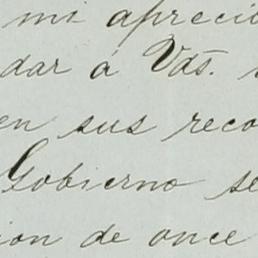 mi apreci
dar á Vds.
en sus reco
Gobierno se
ion de once